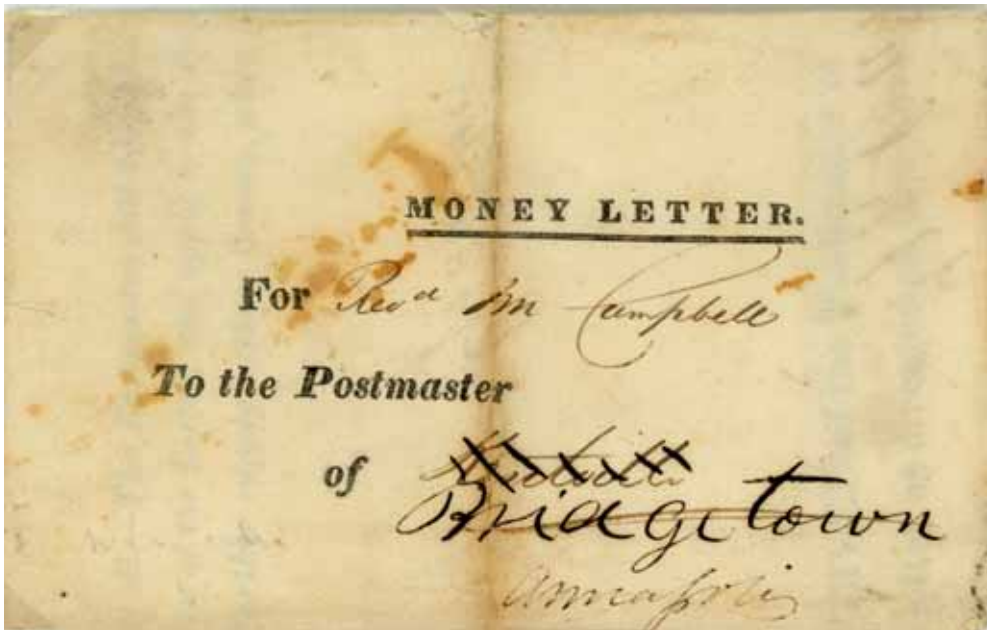 MONEY LETTER.
For Revd Campbell
To the Postmaster
of
Bridgetown
Annapolis